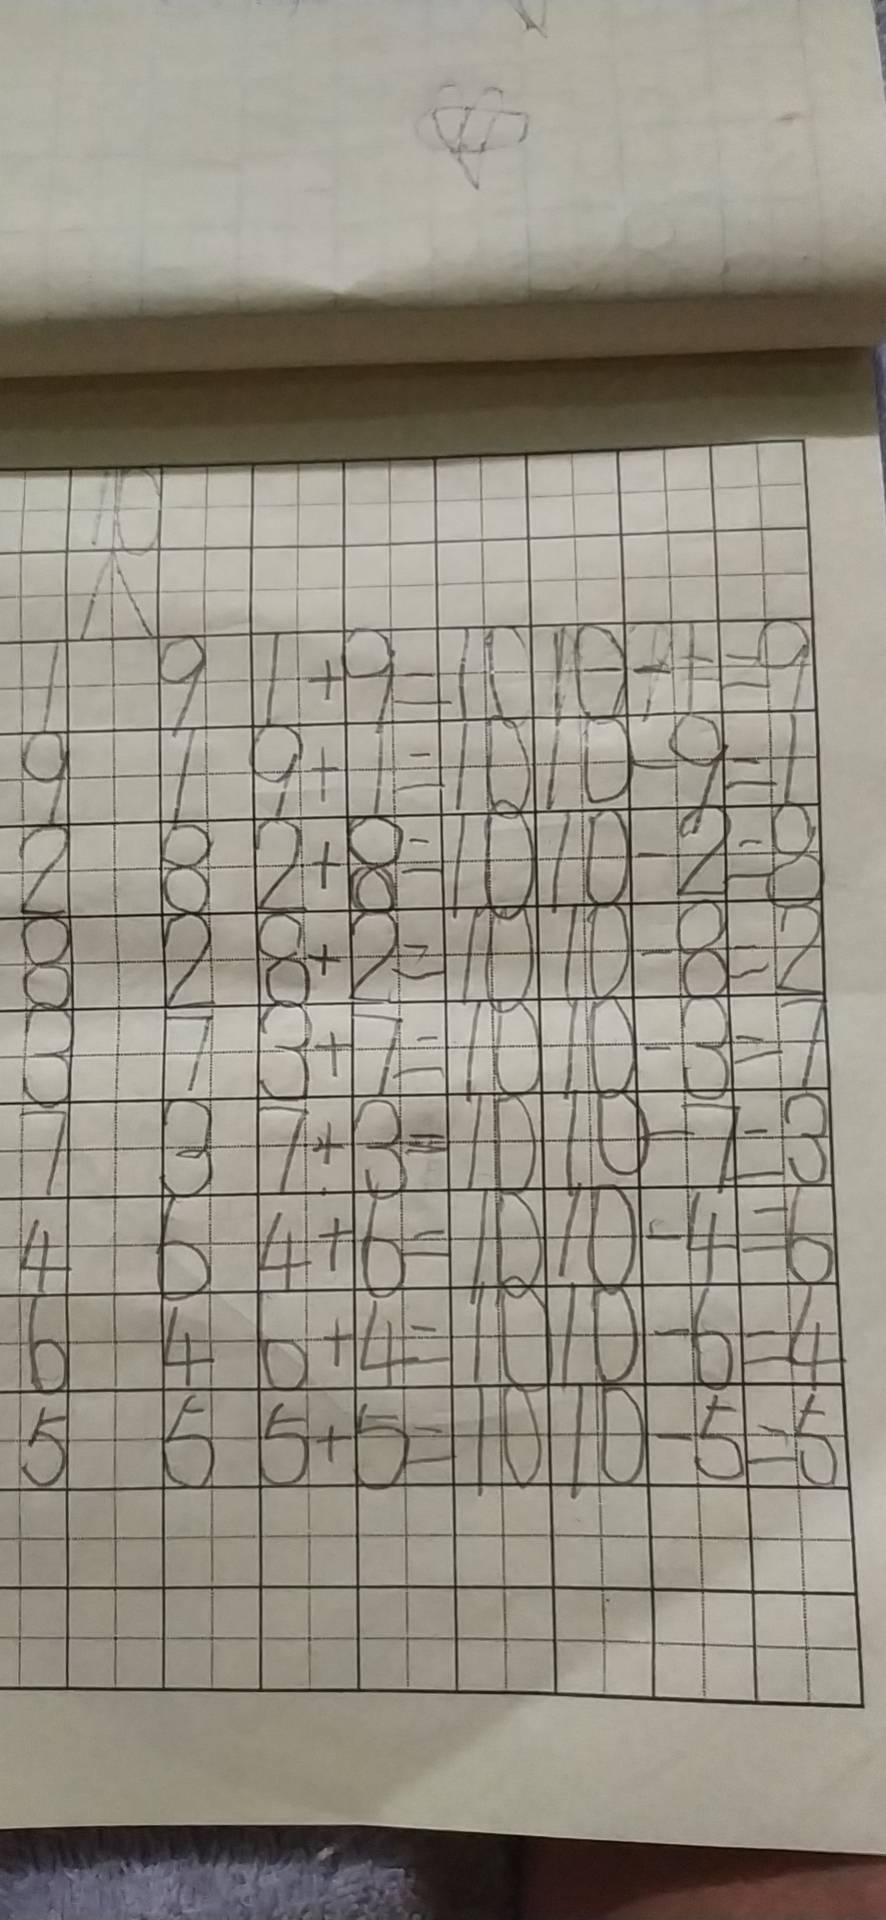 10
1 9 1+9=10 10-1=9
9 1 9+1=10 10-9=1
2 8 2+8=10 10-2=8
8 2 8+2=10 10-8=2
3 7 3+7=10 10-3=7
7 3 7+3=10 10-7=3
4 6 4+6=10 10-4=6
6 4 6+4=10 10-6=4
5 5 5+5=10 10-5=5